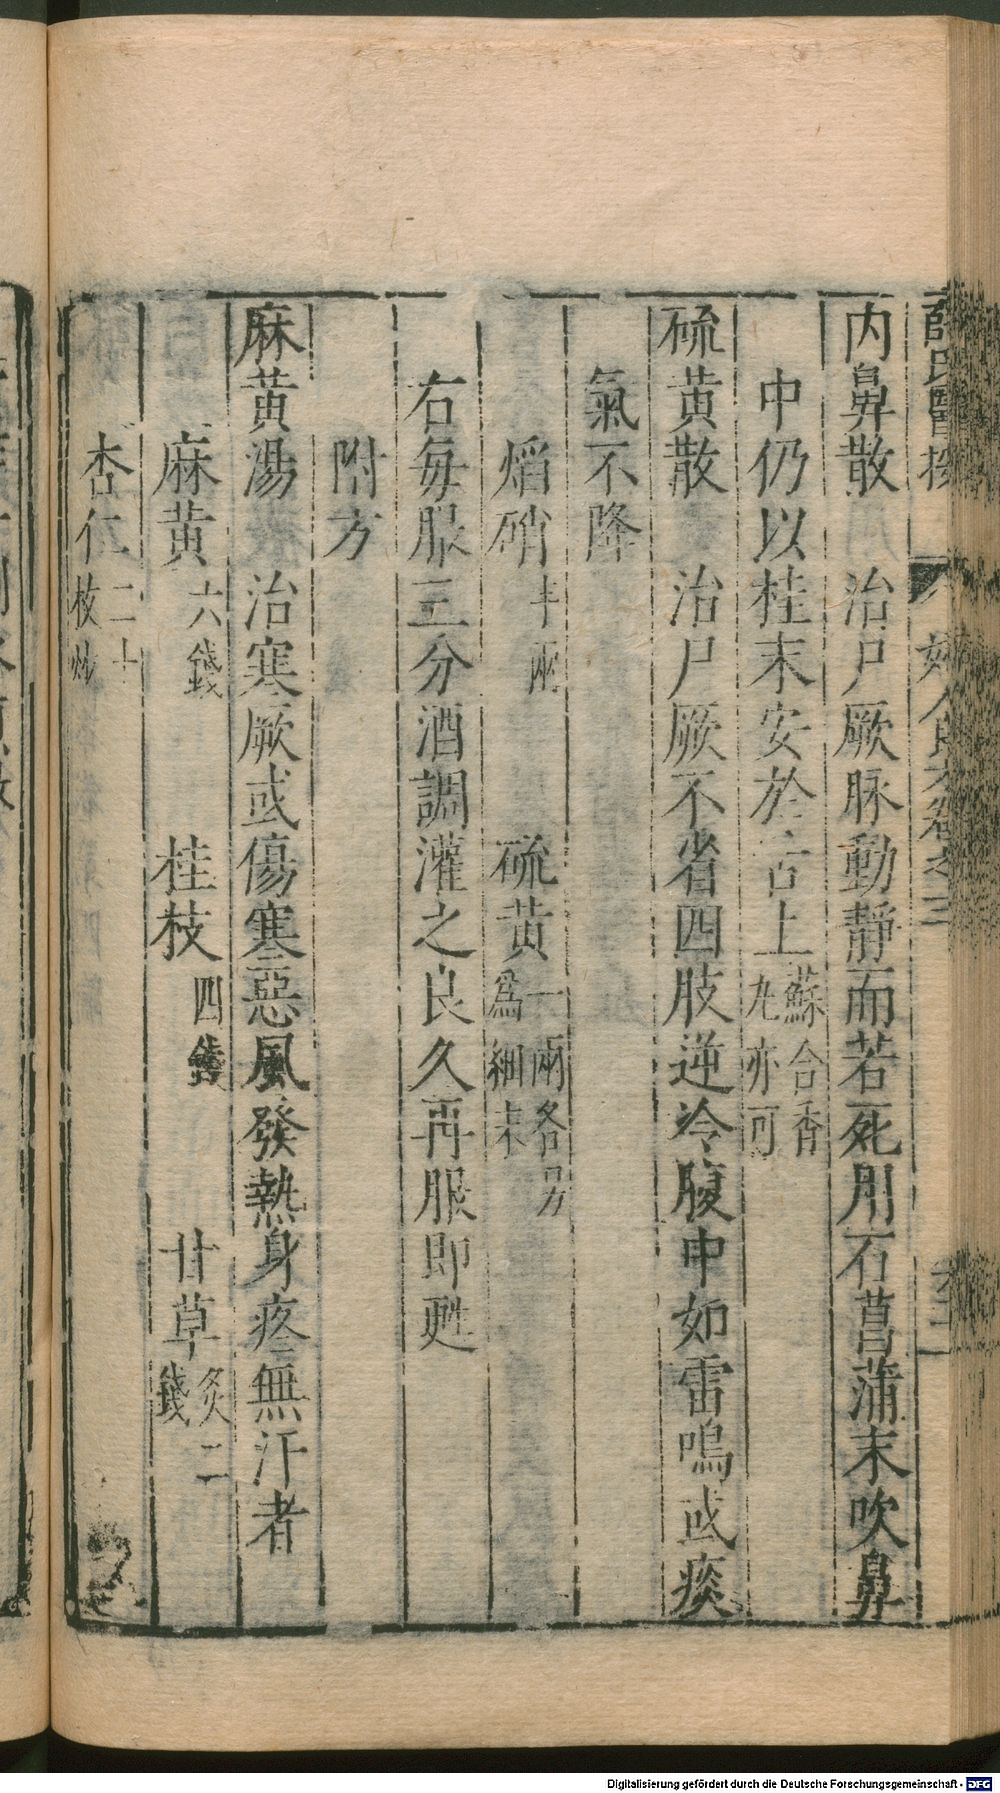 内鼻散　治尸厥脉動靜而若死用石菖蒲末吹鼻
中仍以桂末安於舌上蘇合香丸亦可
硫黄散　治尸厥不省四肢逆冷腹中如雷鳴或痰
氣不降
焰硝半兩　硫黄一兩各另爲細末
右每服三分酒調灌之良久再服即甦
附方
麻黄湯　治寒厥或傷寒惡風發熱身疼無汗者
麻黄六錢　桂枝四錢　甘草炙二錢
杏仁二十枚炒
Digitalisierung gefördert durch die Deutsche Forschungsgemeinschaft - DFG